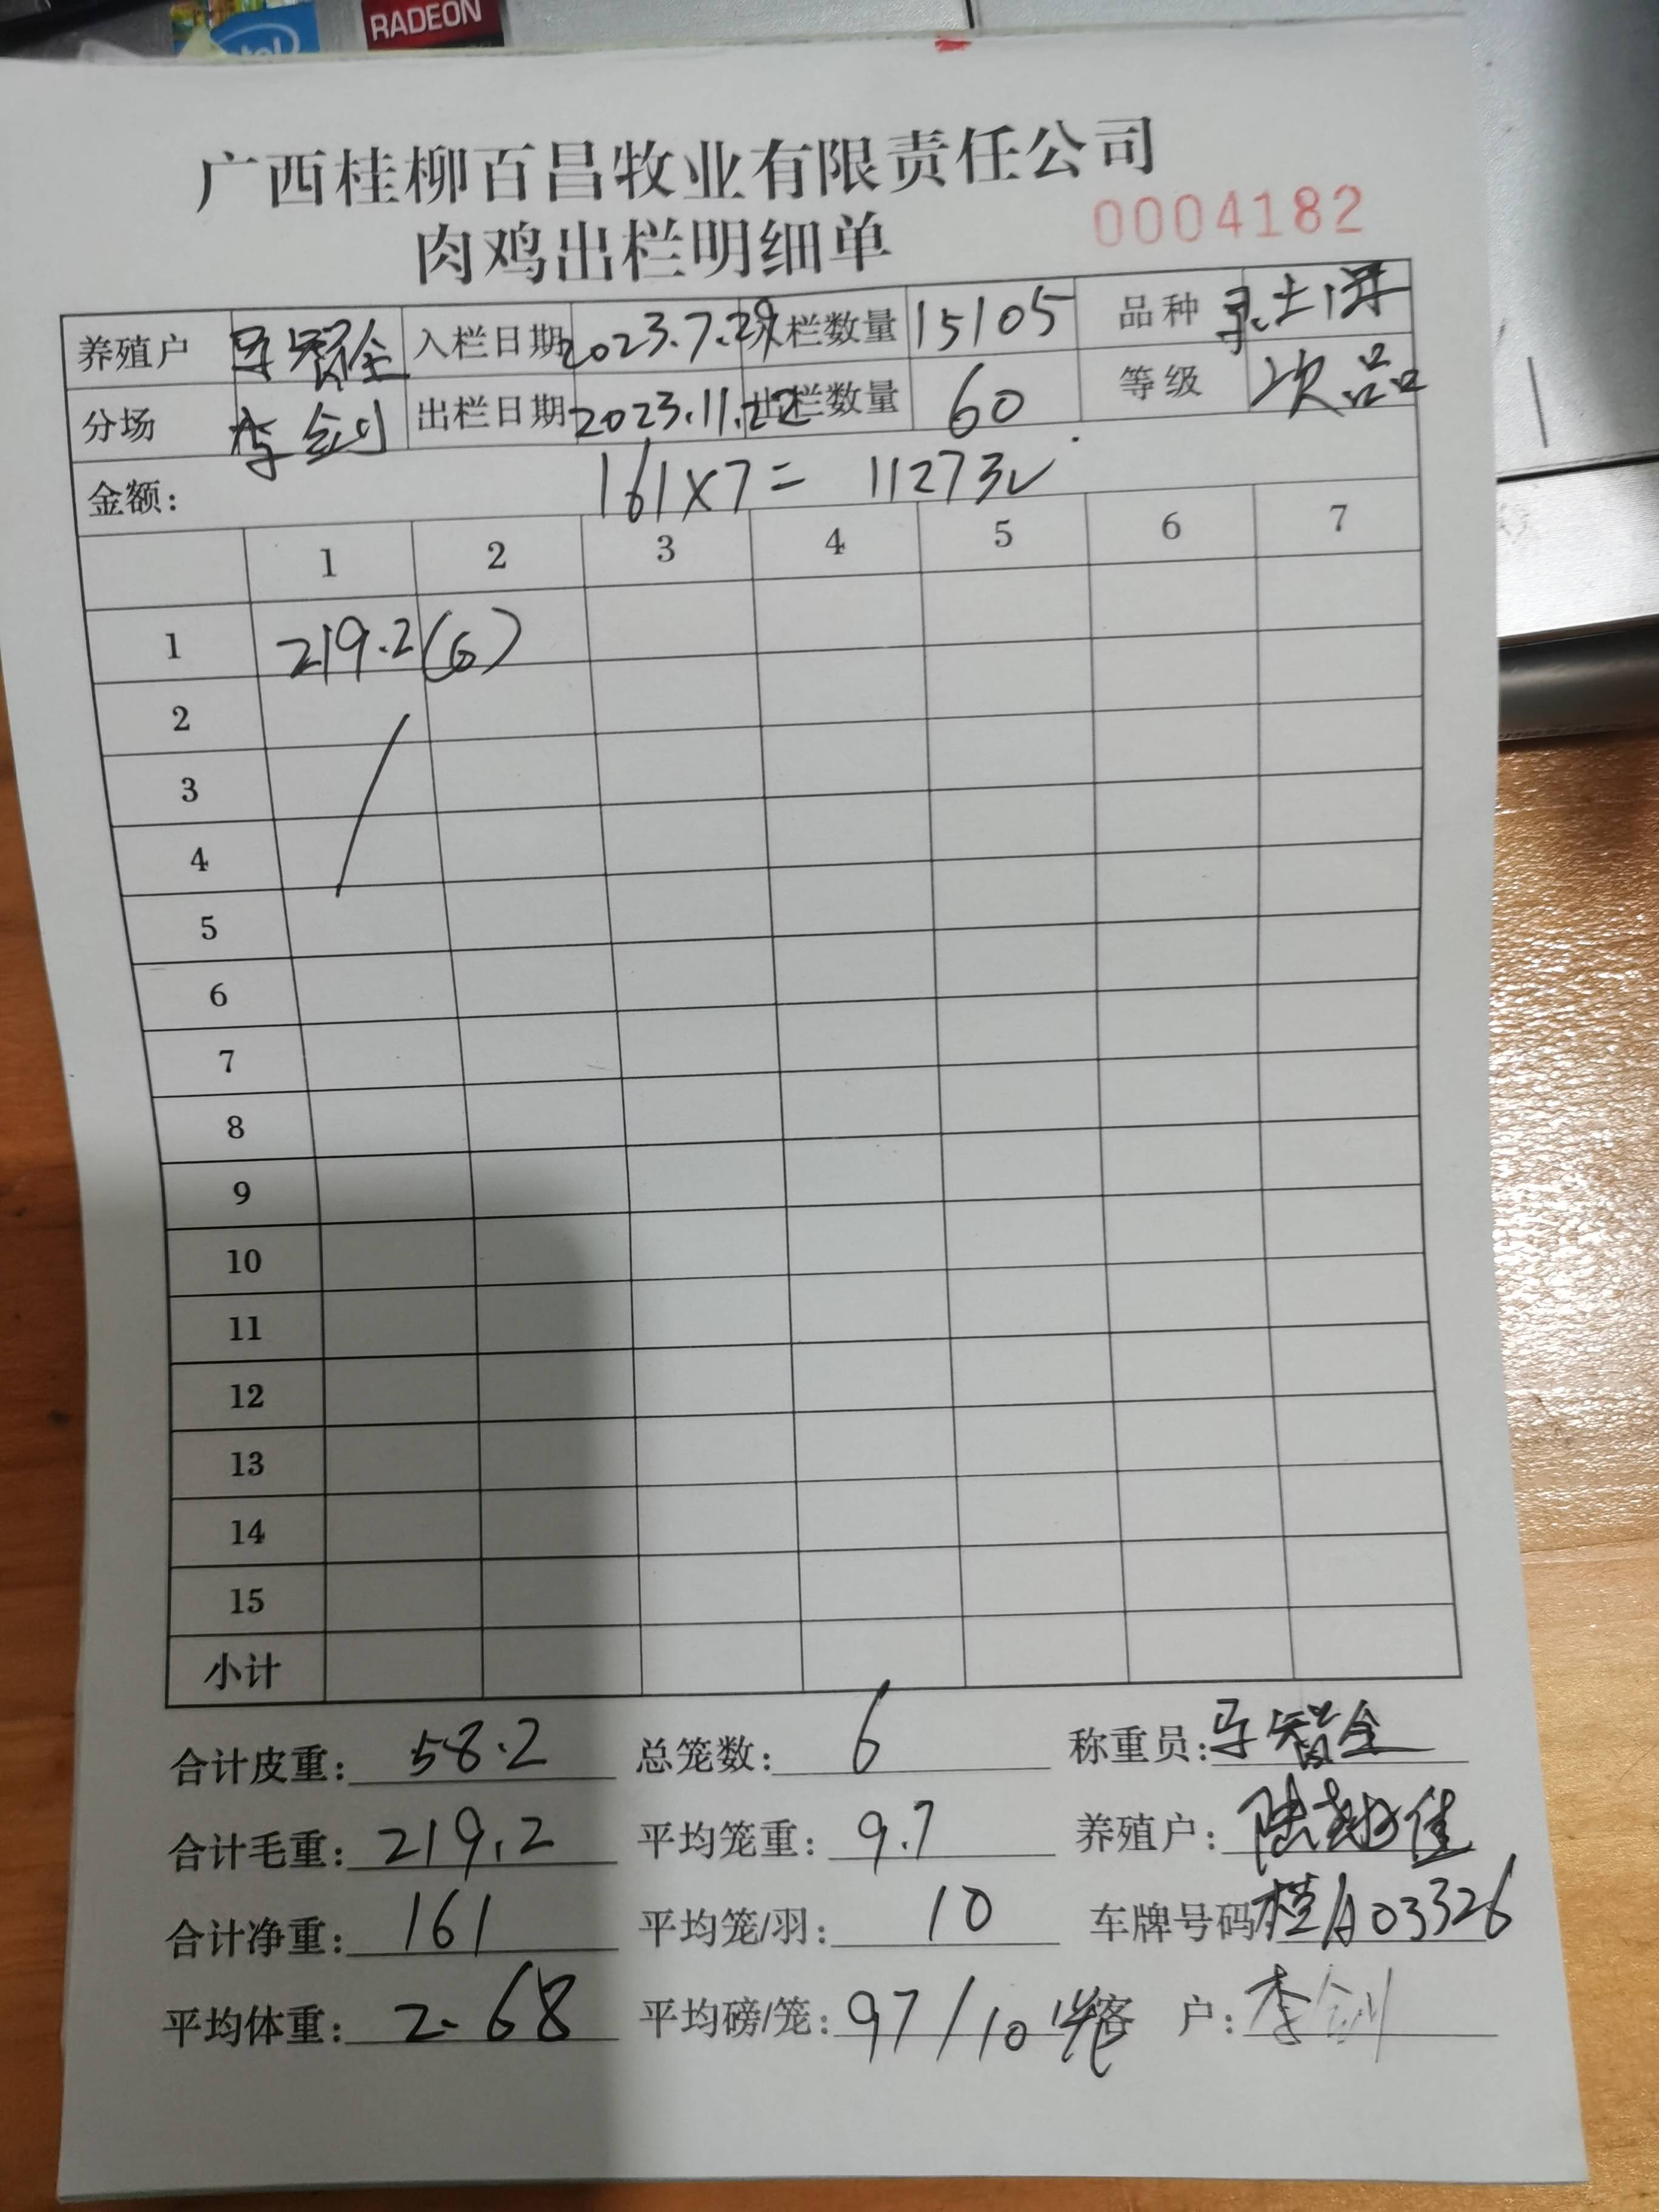 intel RADEON
广西桂柳百昌牧业有限责任公司
肉鸡出栏明细单 0004182
养殖户 马智全 入栏日期 2023.7.29 入栏数量 15105 品种 土
分场 李剑 出栏日期 2023.11.22 出栏数量 60 等级 次品
金额: 161×7= 1127元
1 2 3 4 5 6 7
1 219.2(6)
2
3
4
5
6
7
8
9
10
11
12
13
14
15
小计
合计皮重: 58.2 总笼数: 6 称重员: 马智全
合计毛重: 219.2 平均笼重: 9.7 养殖户: 陆 佳
合计净重: 161 平均笼/羽: 10 车牌号码 桂A03326
平均体重: 2.68 平均磅/笼: 97/10笼 客 户: 李剑